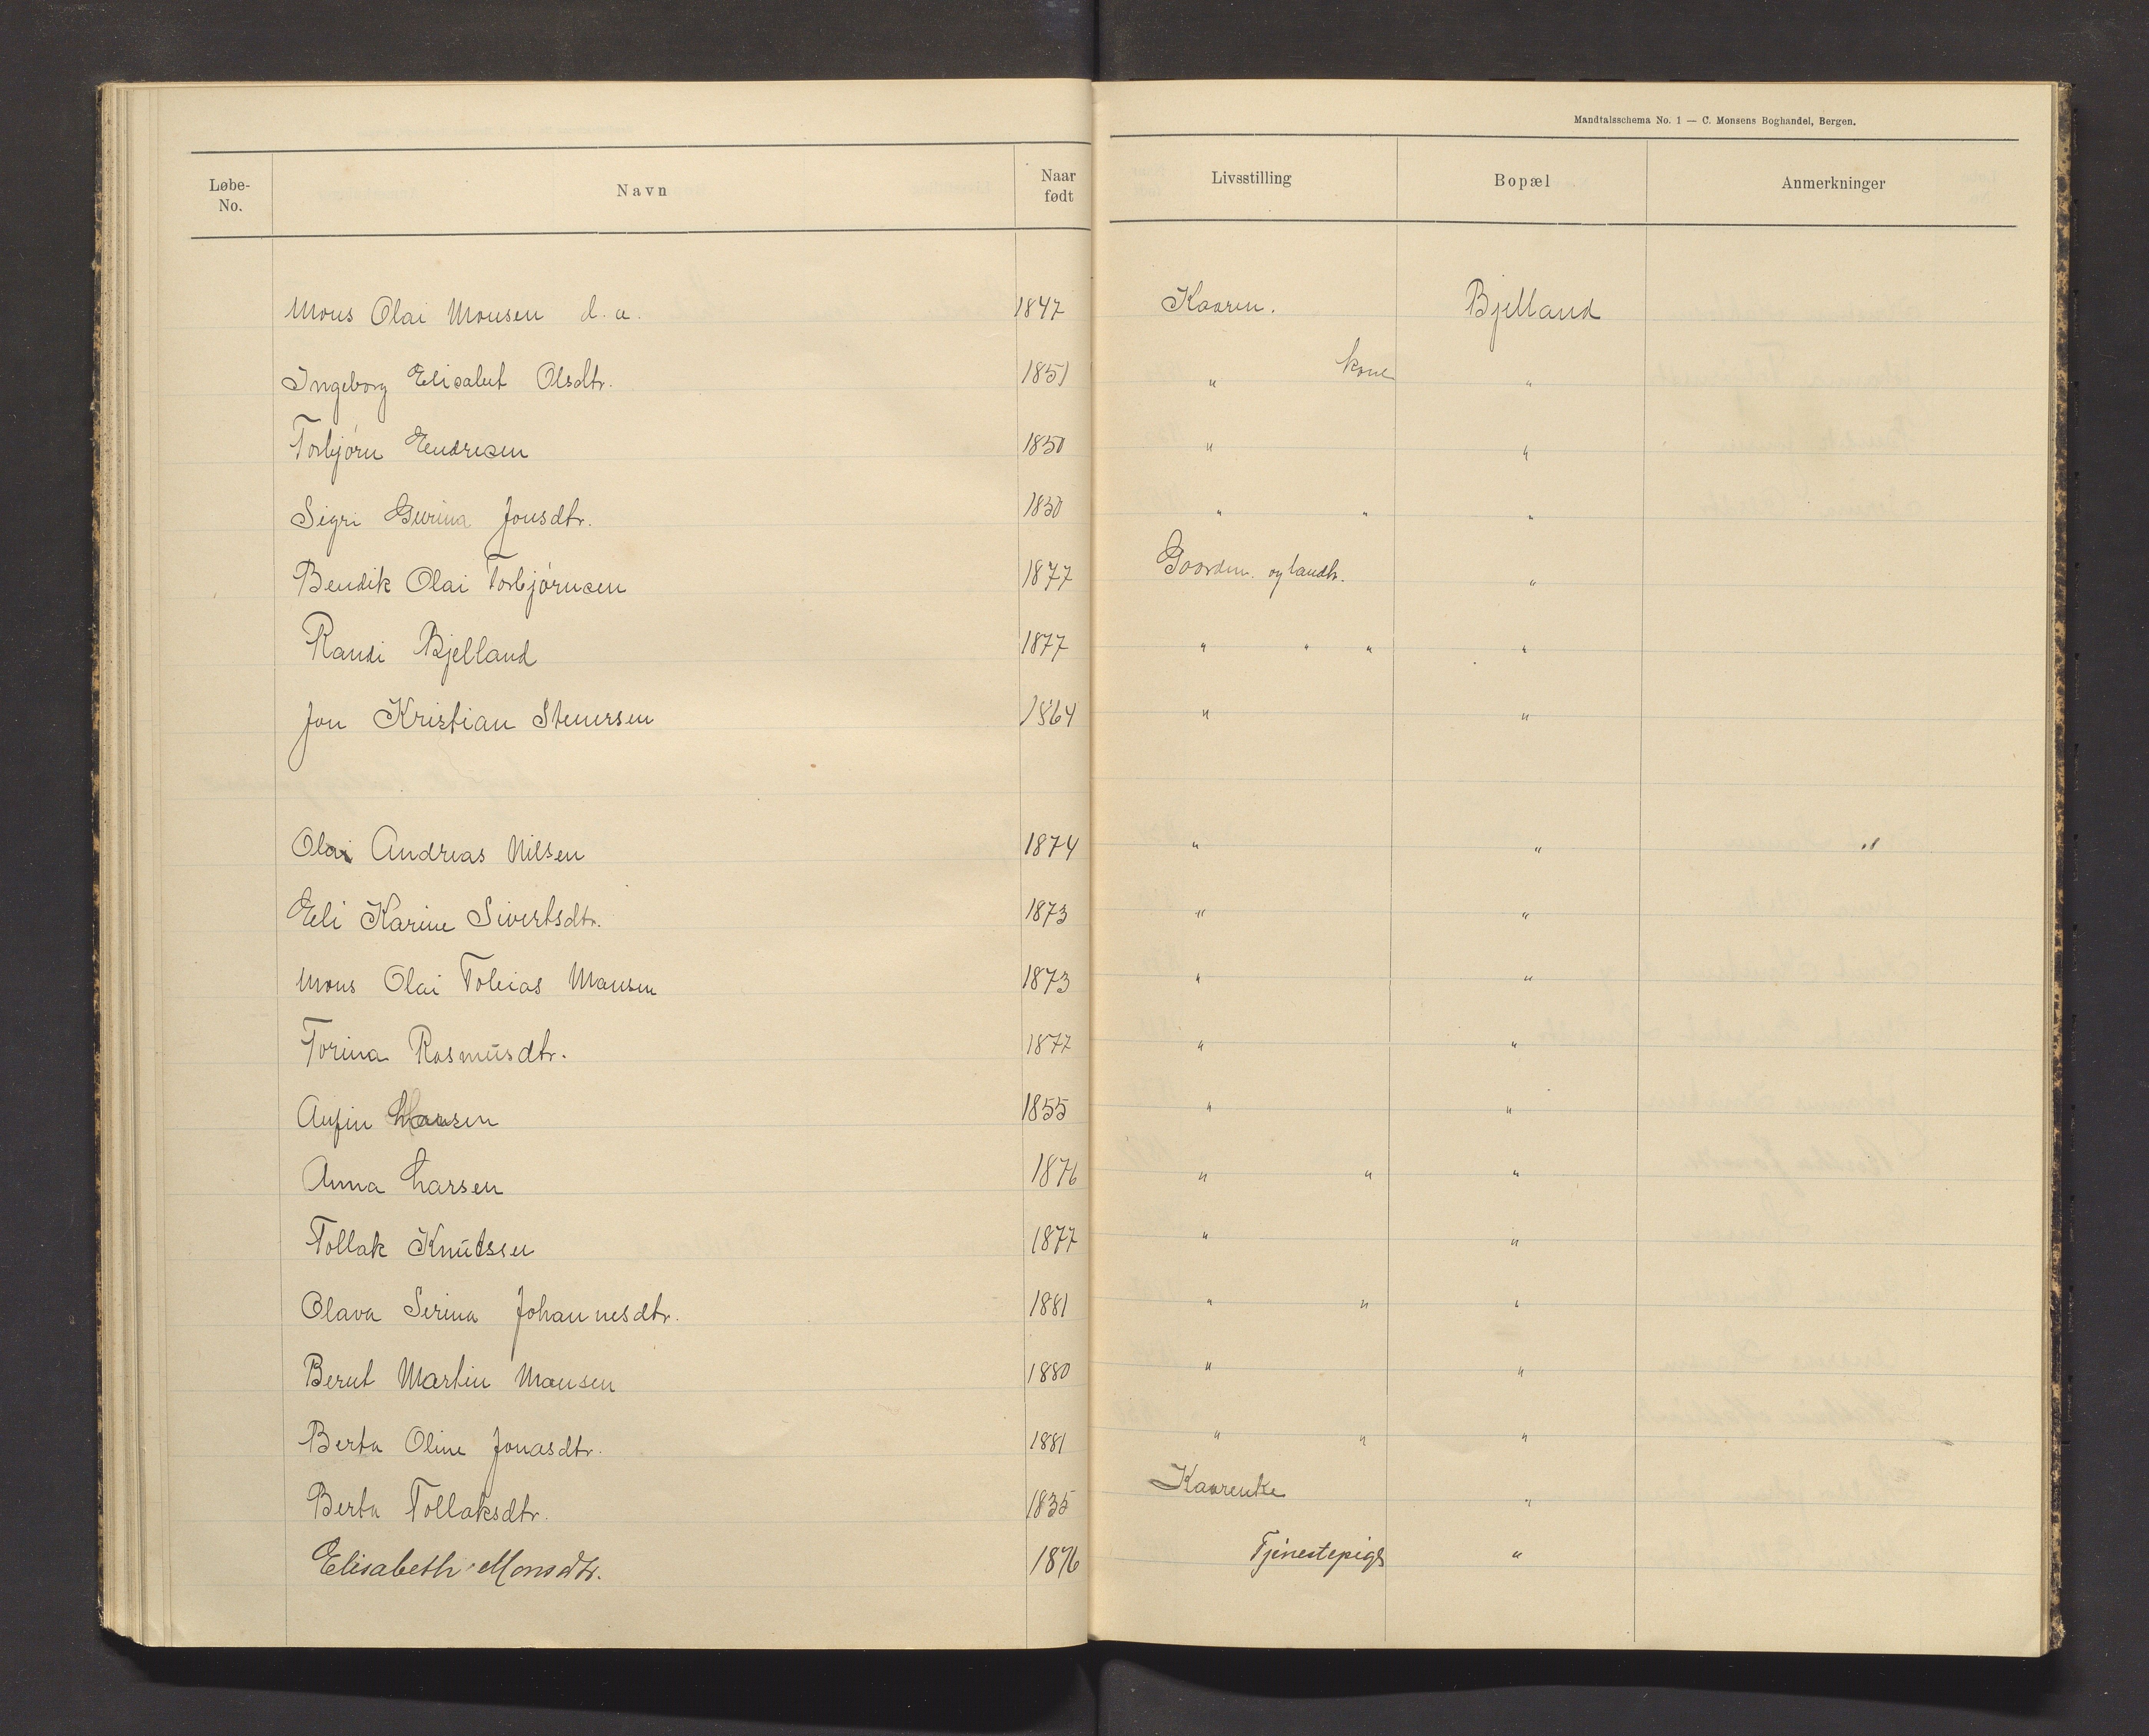 Mandtalsschema No. 1 — C. Monsens Boghandel, Bergen.
Løbe-No. Navn Naar født Livsstilling Bopæl Anmerkninger
Mons Olai Monsen d. a. 1847 Kaarm. Bjelland
Ingeborg Elisabet Olsdtr. 1851 " kone "
Torbjørn Endresen 1850 " "
Sigri Gurina Jonsdtr. 1850 " " "
Bendik Olai Torbjørnsen 1877 Gaardm. og landh. "
Randi Bjelland 1877 " " " "
Jon Kristian Stenersen 1864 " "
Olai Andreas Nilsen 1874 " " "
Eli Karine Sivertsdtr. 1873 " "
Mons Olai Tobias Monsen 1873 " "
Torina Rasmusdtr. 1877 " "
Anfin Larsen 1855 " "
Anna Larsen 1876 " " "
Tollak Knutsen 1877 " "
Olava Serina Johannesdtr. 1881 " " "
Bernt Martin Monsen 1880 " "
Berta Oline Jonasdtr. 1881 " " "
Berta Tollaksdtr. 1835 Kaarenke "
Elisabeth Monsdtr. 1876 Tjenestepige "